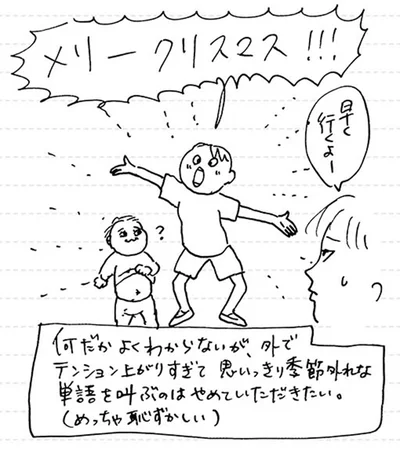 メリークリスマス!!!
早く
行くよー
?
何だか よくわからないが、外で
テンション上がりすぎて 思いっきり季節外れな
単語を叫ぶのは やめていただきたい。
(めっちゃ恥ずかしい)